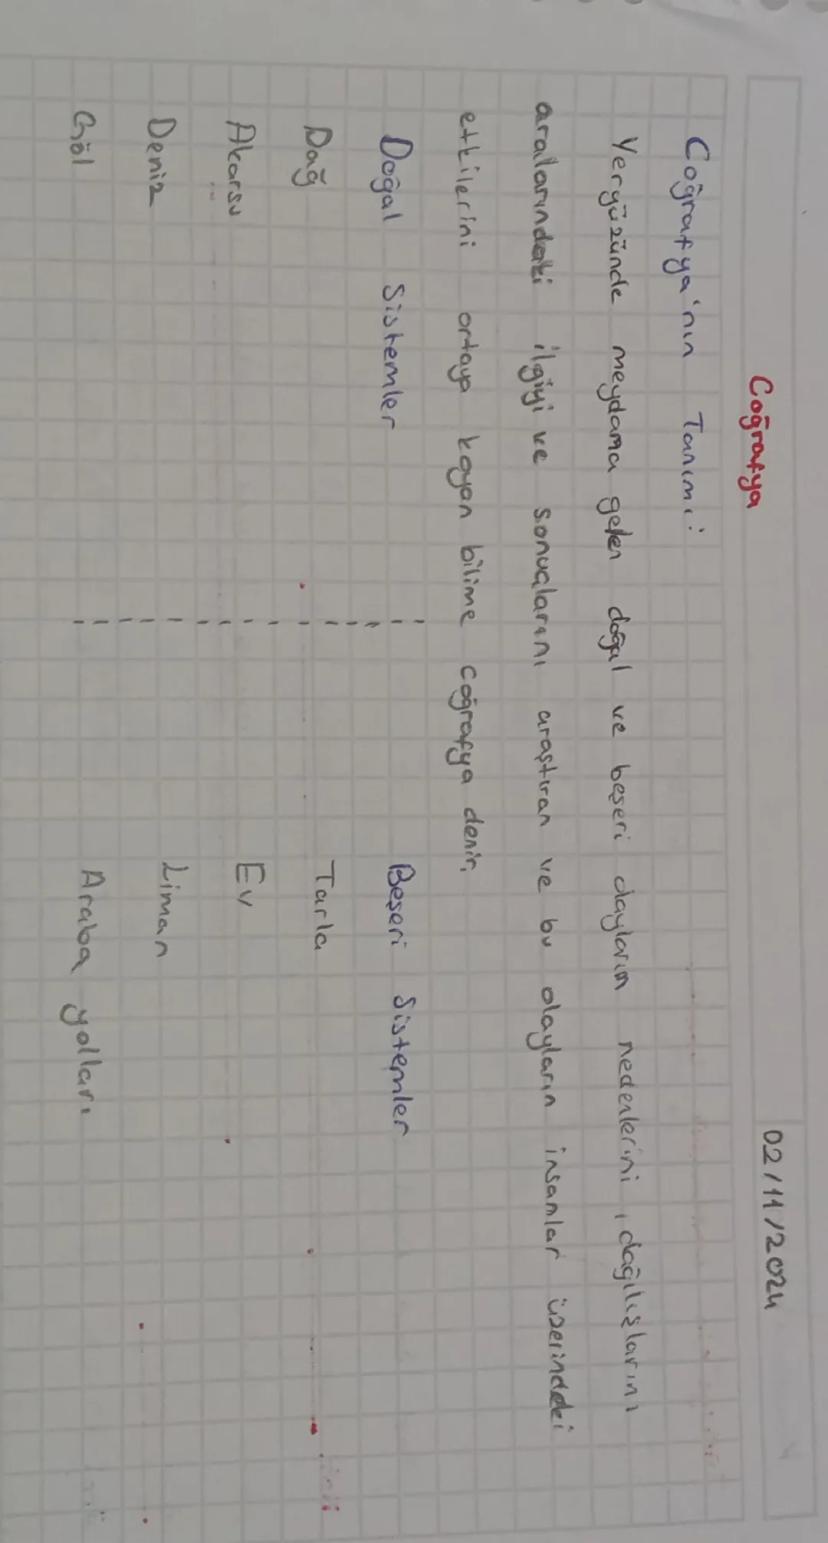 02/11/2024
Coğrafya
Coğrafya'nın Tanımı:
Yeryüzünde meydama gelen doğal ve beşeri olayların nedenlerini, dağılışlarını
aralarındaki ilgiyi ve sonuçlarını araştıran ve bu olayların insanlar üzerindeki
etkilerini ortaya koyan bilime coğrafya denir.
Doğal Sistemler Beşeri Sistemler
Dağ Tarla
Akarsu Ev
Deniz Liman
Göl Araba yolları